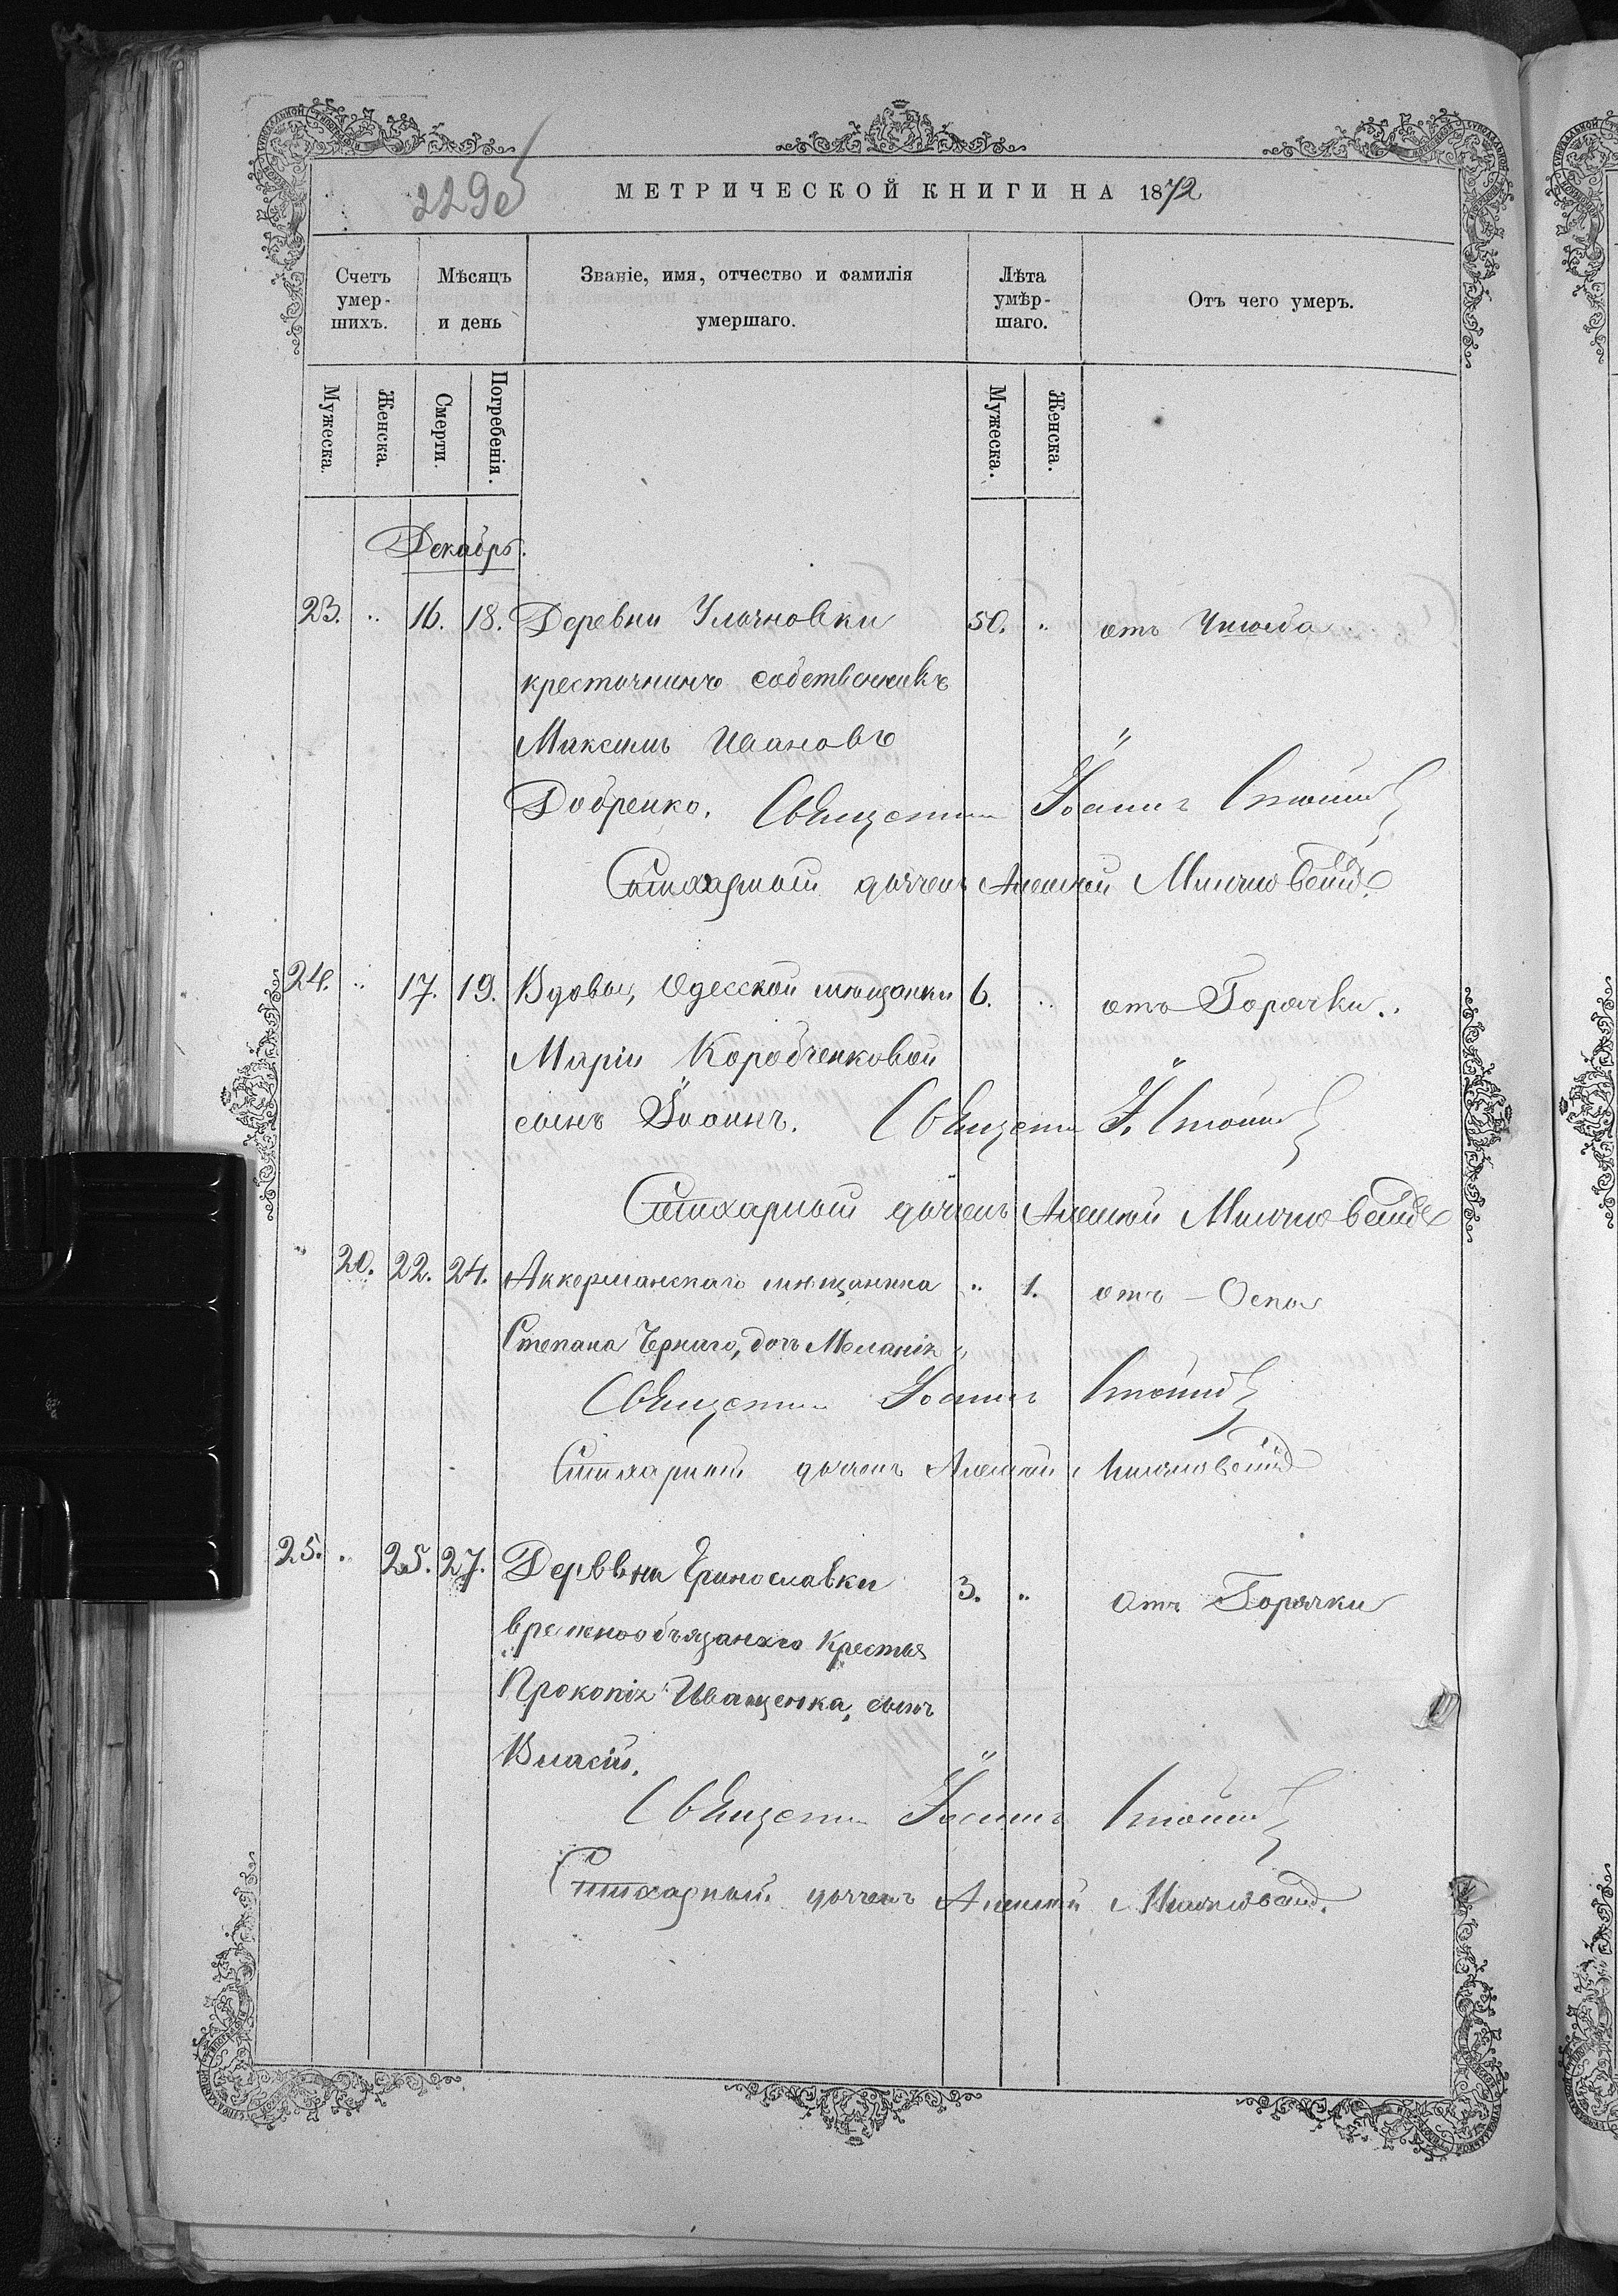 229об
МЕТРИЧЕСКОЙ КНИГИ НА 1872
Счетъ умер-шихъ. Мѣсяцъ и день Званіе, имя, отчество и фамилія умершаго. Лѣта умѣр-шаго. Отъ чего умеръ.
Мужеска. Женска. Смерти. Погребенія. Мужеска. Женска.
Декабрь.
23. " 16. 18. Деревни Ульяновки 50. " отъ
крестьянинъ собственникъ
Максимъ Ивановъ
Добренко. Священникъ Іоаннъ
Стихарный дьячекъ Алексѣй
24. " 17. 19. Вдовы, Одесской мѣщанки 6. " отъ Горячки.
Маріи Коробченковой
сынъ Іоаннъ. Священникъ І.
Стихарный дьячекъ Алексѣй
" 20. 22. 24. Аккерманскаго мѣщанина " 1. отъ – Оспы
Степана Чернаго, дочь Меланія
Священникъ Іоаннъ
Стихарный дьячекъ Алексѣй
25. " 25. 27. Деревни Еринославки 3. " отъ Горячки
временнообязаннаго Крестья
Прокопія Иващенка, сынъ
Власій.
Священникъ Іоаннъ
Стихарный дьячекъ Алексѣй